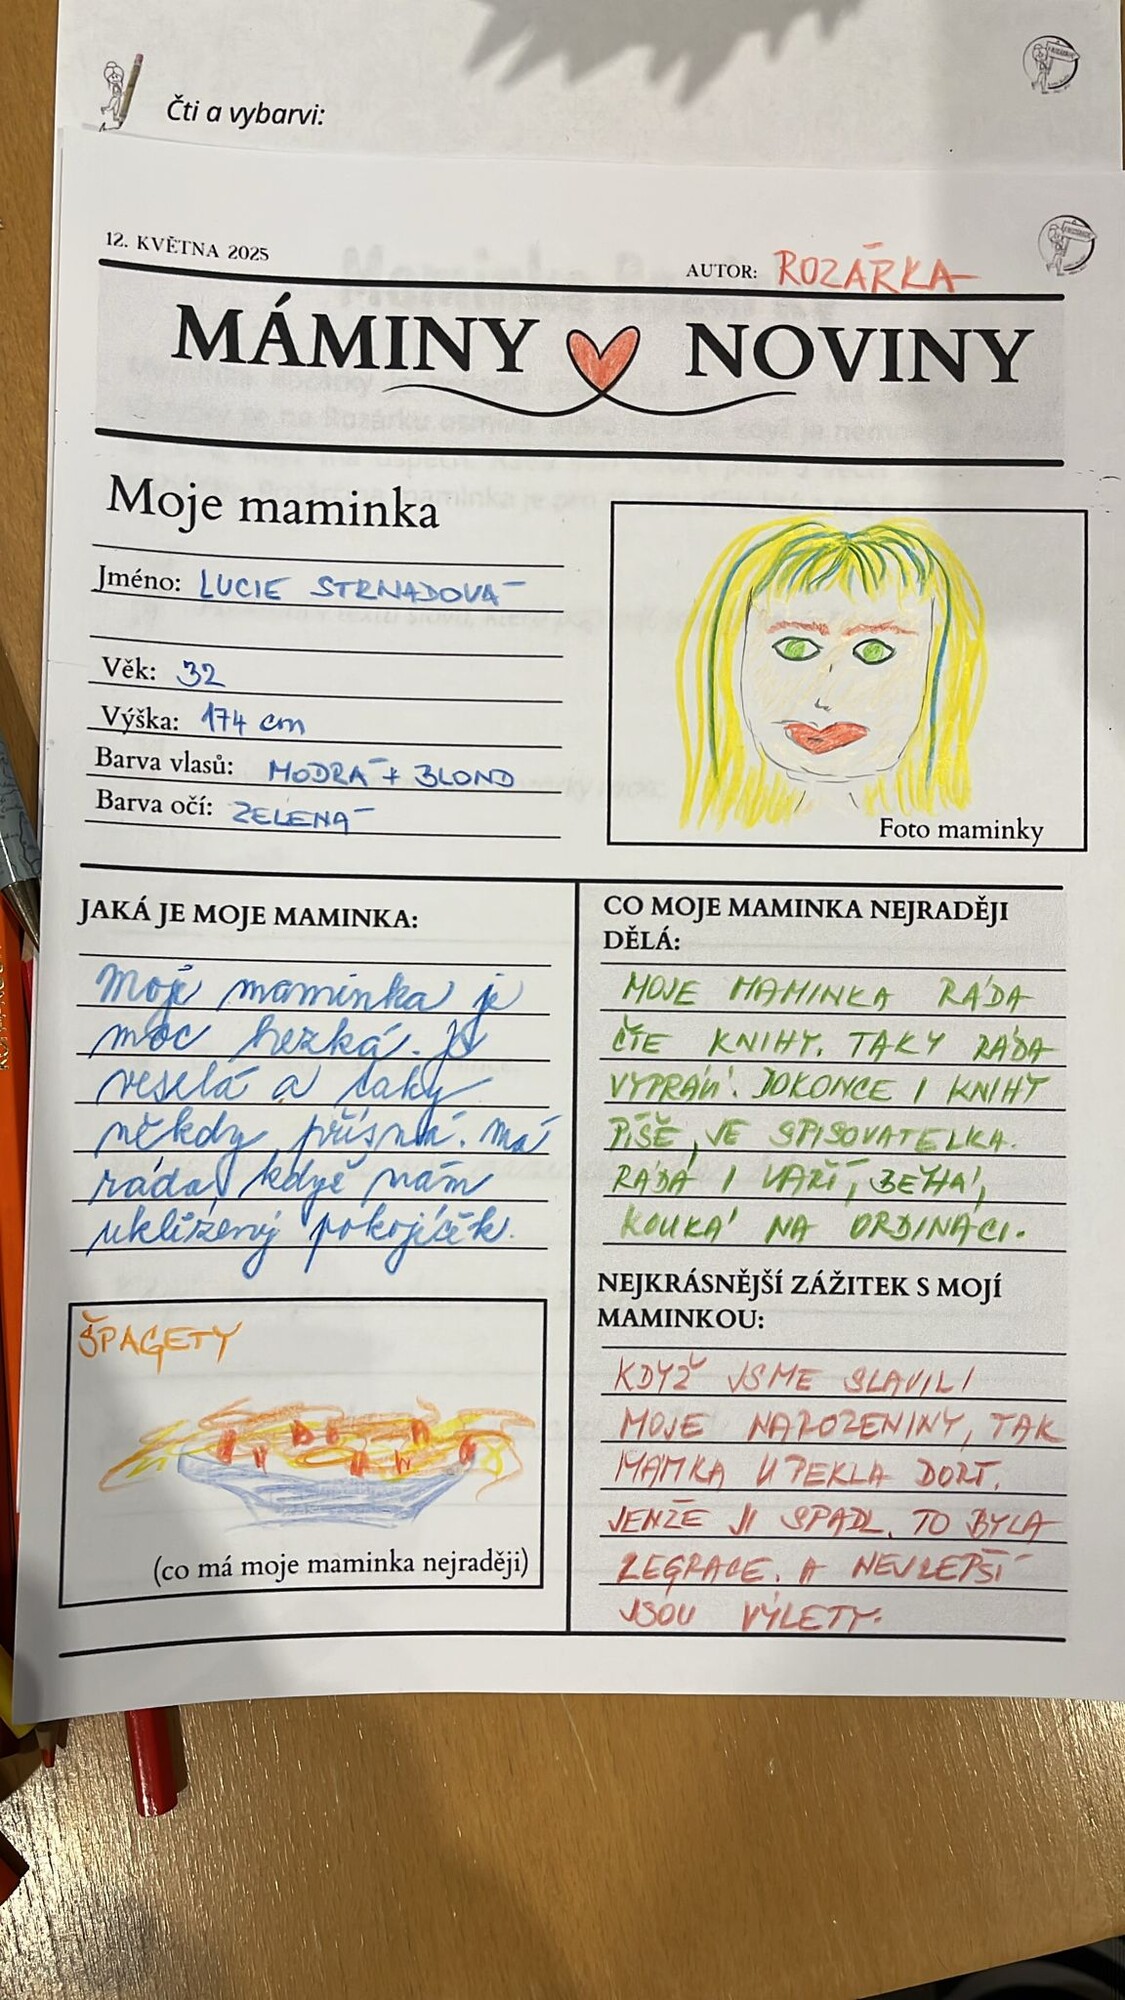 Čti a vybarvi:
12. KVĚTNA 2025
AUTOR: ROZÁRKA
MÁMINY NOVINY
Moje maminka
Jméno: LUCIE STRNADOVÁ
Věk: 32
Výška: 174 cm
Barva vlasů: MODRÁ + BLOND
Barva očí: ZELENÁ
Foto maminky
JAKÁ JE MOJE MAMINKA:
Moje maminka je
moc hezká. Je
veselá a taky
někdy přísná. Má
ráda, když nám
uklizený pokojíček.
ŠPAGETY
(co má moje maminka nejraději)
CO MOJE MAMINKA NEJRADĚJI
DĚLÁ:
MOJE MAMINKA RÁDA
ČTE KNIHY. TAKY RÁDA
VYPRÁVÍ. DOKONCE I KNIHY
PÍŠE, JE SPISOVATELKA.
RÁDA I VAŘÍ, BĚHÁ,
KOUKÁ NA ORDINACI.
NEJKRÁSNĚJŠÍ ZÁŽITEK S MOJÍ
MAMINKOU:
KDYŽ JSME SLAVILI
MOJE NAROZENINY, TAK
MAMKA UPEKLA DORT.
JENŽE JI SPADL. TO BYLA
LEGRACE. A NEJLEPŠÍ
JSOU VÝLETY.